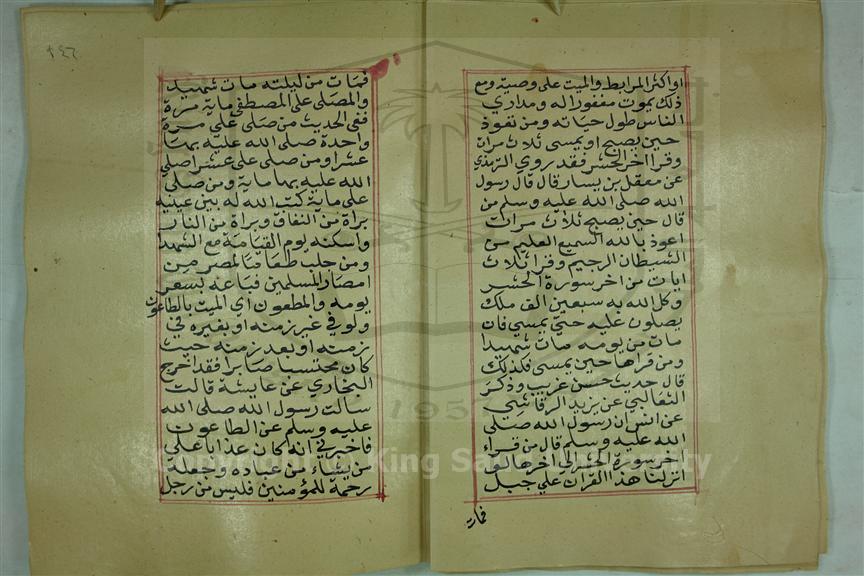 او اكثر المرابط والميت على وصية ومع
ذلك يموت مغفورا له ومداري
الناس طول حياته ومن تعوذ
حين يصبح او يمسى ثلاث مرات
وقرا اخر الحشر فقد روى الترمذي
عن معقل بن يسار قال قال رسول
الله صلى الله عليه وسلم من
قال حين يصبح ثلاث مرات
اعوذ بالله السميع العليم من
الشيطان الرجيم وقرا ثلاث
ايات من اخر سورة الحشر
وكل الله به سبعين الف ملك
يصلون عليه حتى يمسي فان
مات من يومه مات شهيدا
ومن قراها حين يمسى فكذلك
قال حديث حسن غريب وذكر
الثعالبي عن يزيد الرقاشي
عن انس ان رسول الله صلى
الله عليه وسلم قال من قراء
اخر سورة الحشر الى اخرها لو
انزلنا هذا القران على جبل
فمات
فمات من ليلته مات شهيد
والمصلى على المصطفى ماية مرة
ففى الحديث من صلى علي مرة
واحدة صلى الله عليه بها
عشرا ومن صلى على عشرا صلى
الله عليه بها ماية ومن صلى
على ماية كتب الله له بين عينيه
براة من النفاق وبراة من النار
واسكنه يوم القيامة مع الشهدا
ومن جلب طعاما لمصر من
امصار المسلمين فباعه بسعر
يومه والمطعون اي الميت بالطاعون
ولو في غير زمنه او بغيره في
زمنه او بعد زمنه حيث
كان محتسبا صابرا فقد اخرج
البخاري عن عايشة قالت
سالت رسول الله صلى الله
عليه وسلم عن الطاعون
فاخبرني انه كان عذابا على
من يشاء من عباده وجعله
رحمة للمؤمنين فليس من رجل
1957
Copyright © King Saud University